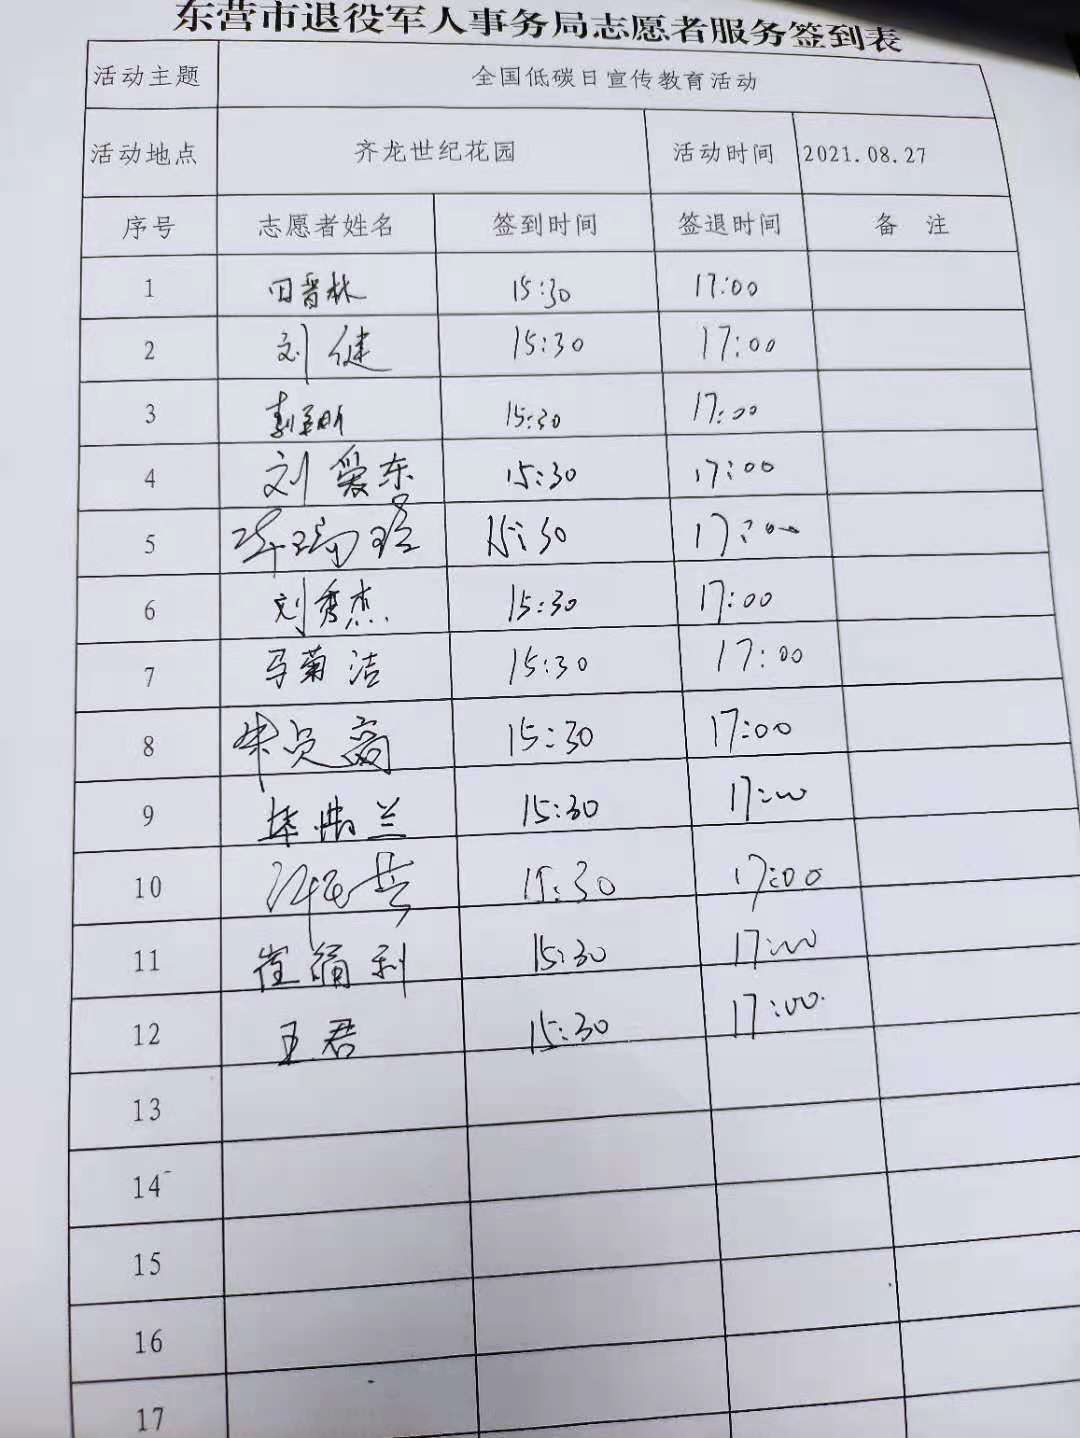 东营市退役军人事务局志愿者服务签到表
活动主题 全国低碳日宣传教育活动
活动地点 齐龙世纪花园 活动时间 2021.08.27
序号 志愿者姓名 签到时间 签退时间 备 注
1 田晋林 15:30 17:00
2 刘健 15:30 17:00
3 15:30 17:00
4 刘爱东 15:30 17:00
5 15:30 17:00
6 刘秀杰 15:30 17:00
7 马菊洁 15:30 17:00
8 15:30 17:00
9 15:30 17:00
10 15:30 17:00
11 15:30 17:00
12 王君 15:30 17:00
13
14
15
16
17